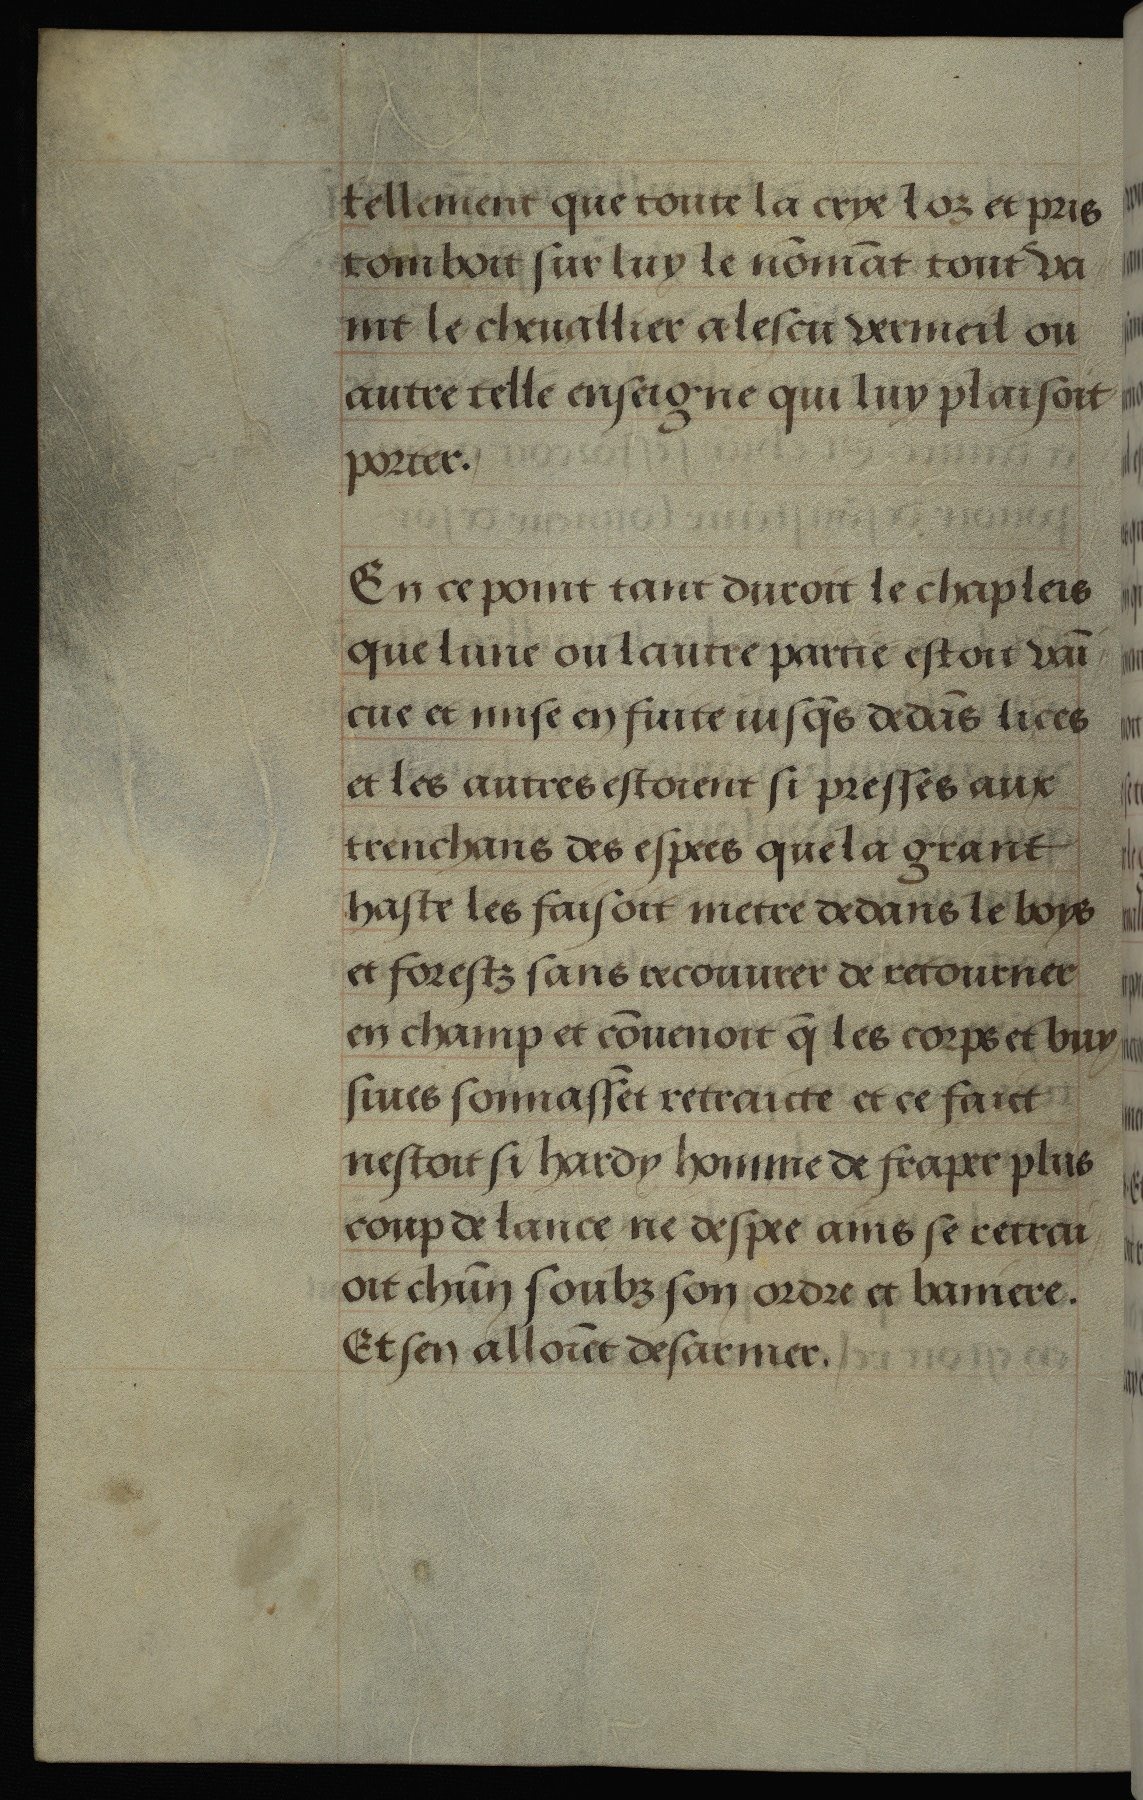 tellement que toute la crye loz et pris
tomboit sur luy le nōmāt tout va
nit le cheuallier a lescu vermeil ou
autre telle enseigne qui luy plaisoit
porter.
En ce point tant duroit le chapleis
que lune ou lautre partie estoit vaī
cue et mise en fuite iusqs̄ dedās lices
et les autres estoient si presses aux
trenchans des espees que la grant
haste les faisoit metre dedans le boys
et forestz sans recouurer de retourner
en champ et cōuenoit q̄ les corps et buy
sines sonnassēt retraicte et ce faict
nestoit si hardy homme de fraper plus
coup de lance ne despee ains se retrai
oit chūn soubz son ordre et baniere.
Et sen alloiēt desarmer.